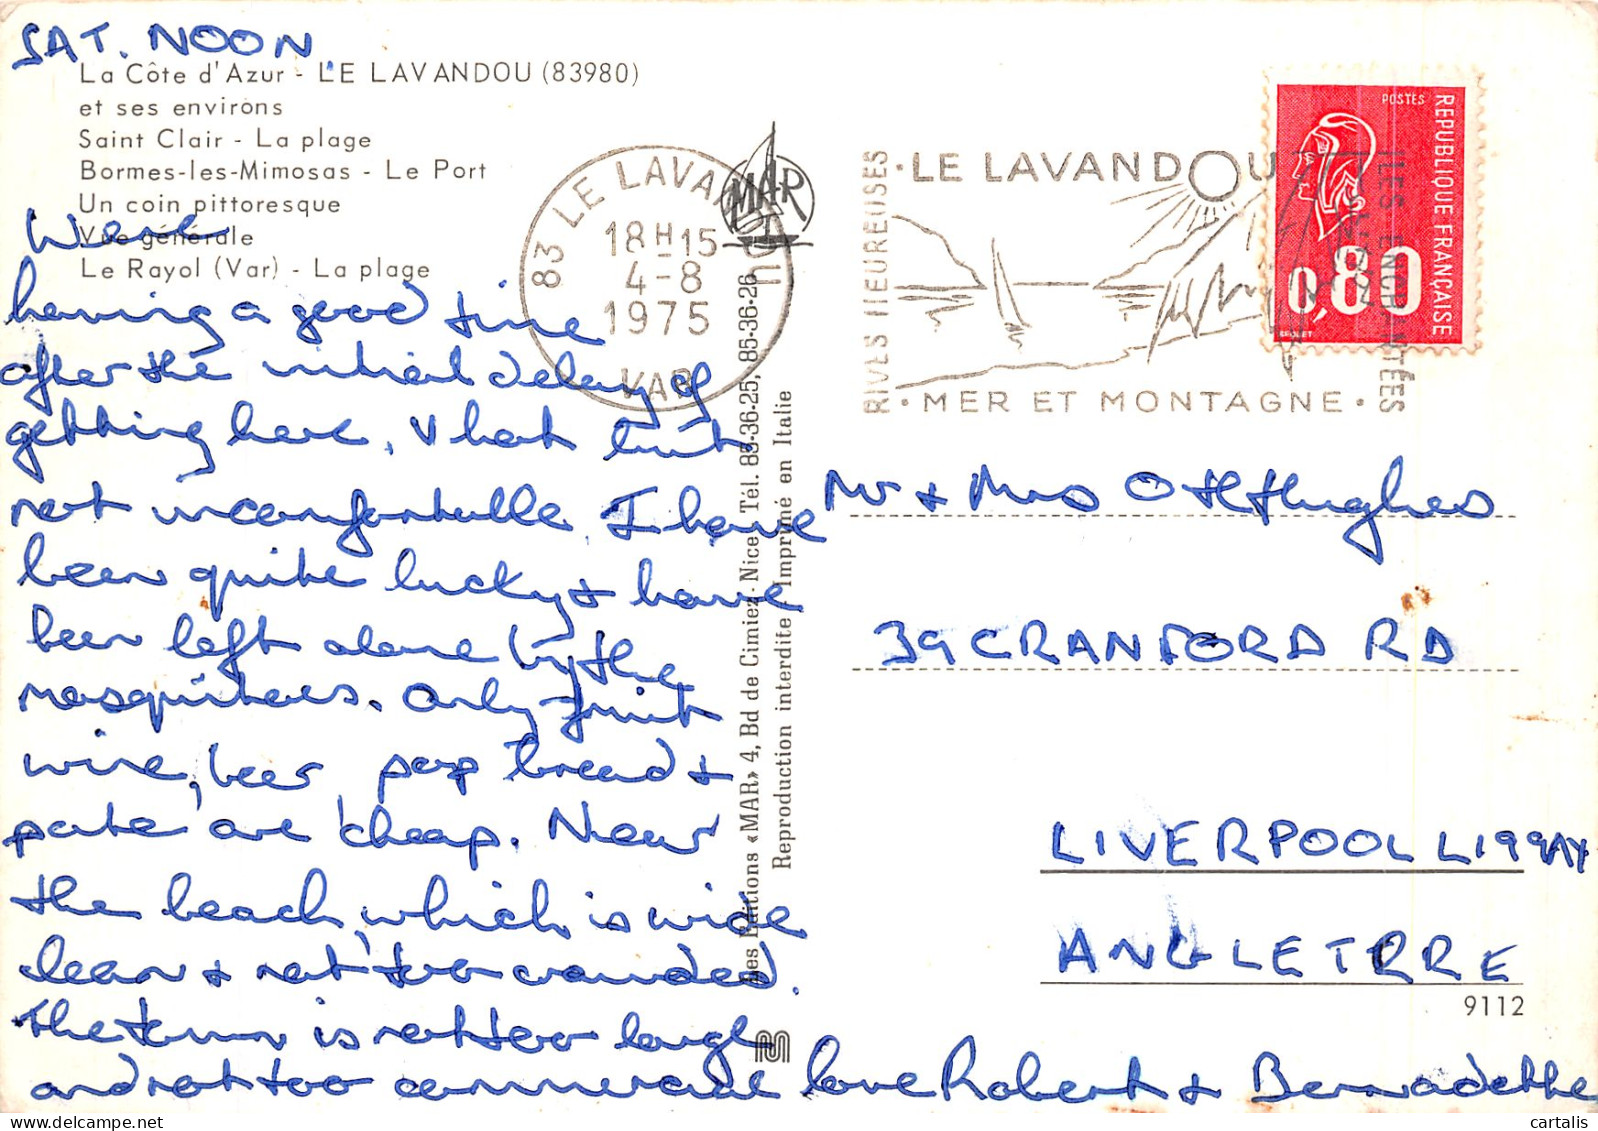 SAT. NOON.
La Côte d'Azur - LE LAVANDOU (83980)
et ses environs
Saint Clair - La plage
Bormes-les-Mimosas - Le Port
Un coin pittoresque
Vue générale
Le Rayol (Var) - La plage
Were
having a good time
after the initial delay of
getting here. V hot but
not uncomfortable. I have
been quite lucky & have
been left alone by the
mosquitoes. Only fruit
wine, beer pop bread &
pate are cheap. Near
the beach which is wide
clean & not too crowded.
The town is not too large
and not too commercial love Robert & Bernadette
83 LE LAVANDOU
18H15
4-8
1975
VAR
MAR
RIVES HEUREUSES
• LE LAVANDOU
ILES ENCHANTÉES
• MER ET MONTAGNE •
POSTES
REPUBLIQUE FRANÇAISE
0,80
Les Editions «MAR» 4, Bd de Cimiez - Nice Tél. 85-36-25, 85-36-26
Reproduction interdite / Imprimé en Italie
Mr & Mrs O H Hughes
39 CRANFORD RD
LIVERPOOL L19 9AY
ANGLETERRE
9112
cartalis